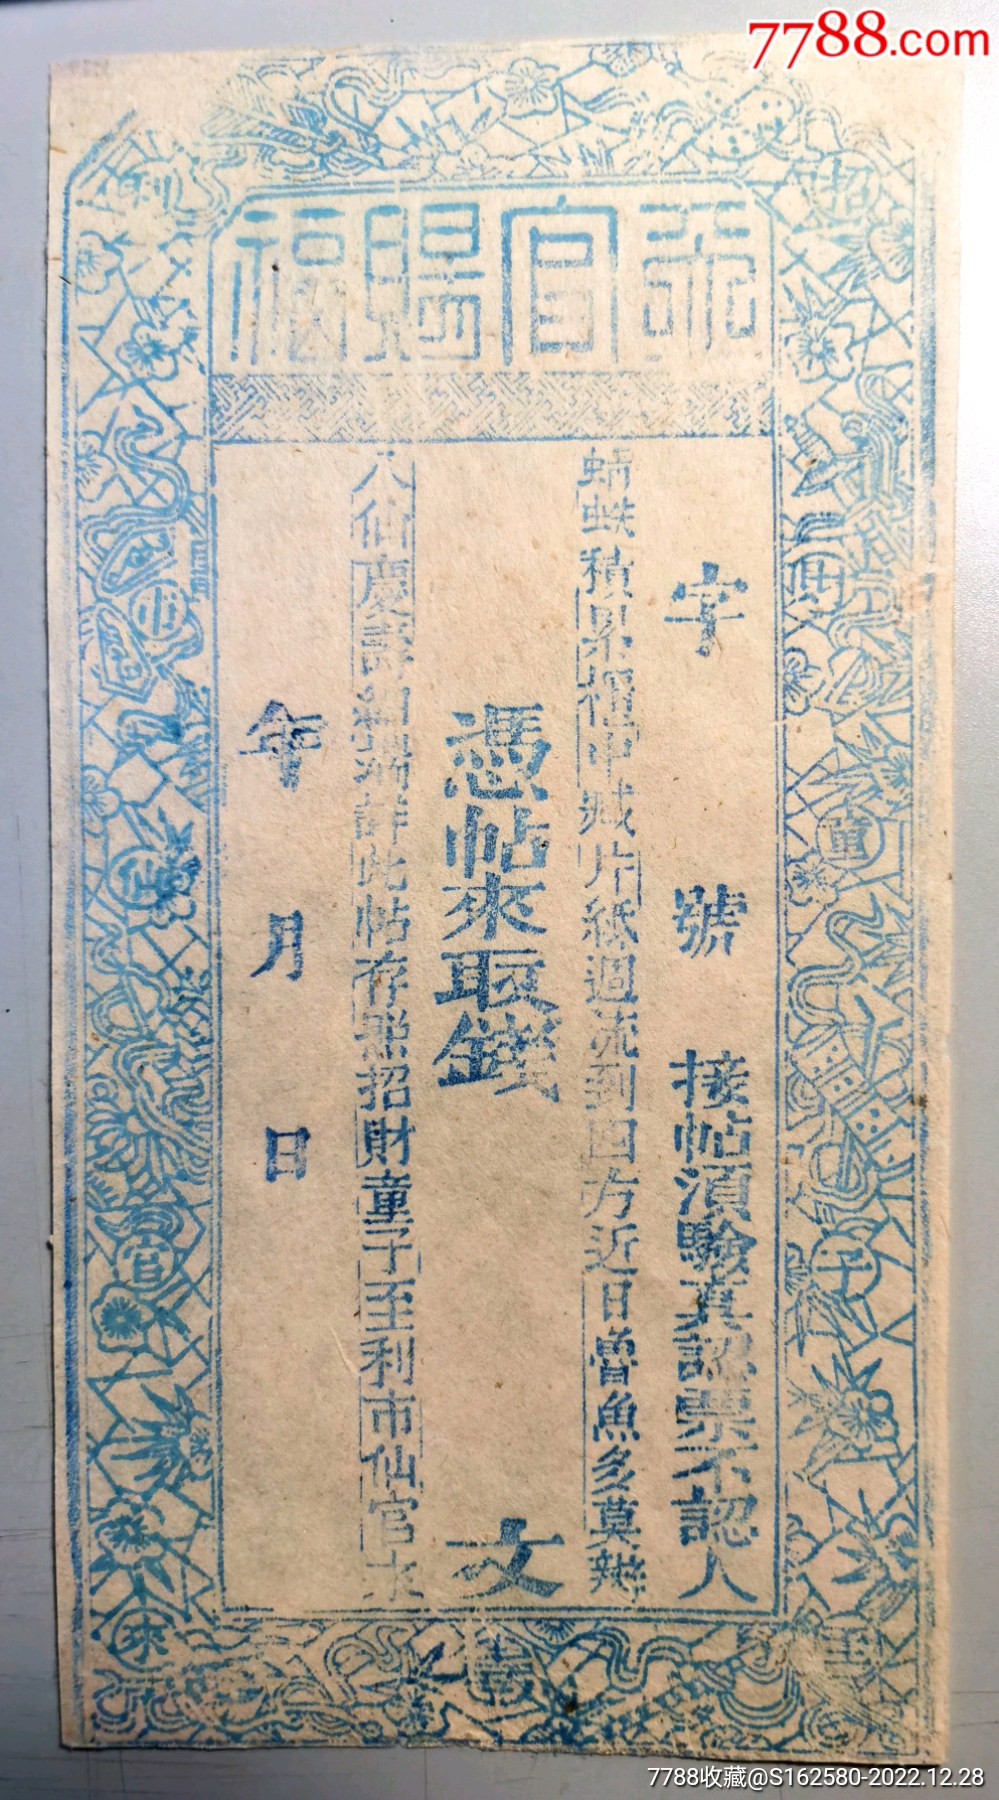 7788.com
天官賜福
字 號 接帖須驗真認票不認人
蜻蚨積累櫃中藏片紙週流到四方近日魯魚多莫辨
憑帖來取錢 文
八仙慶壽細端詳此帖存照招財童子至利市仙官來
年 月 日
招財童子至
利市仙官來
7788收藏@S162580-2022.12.28